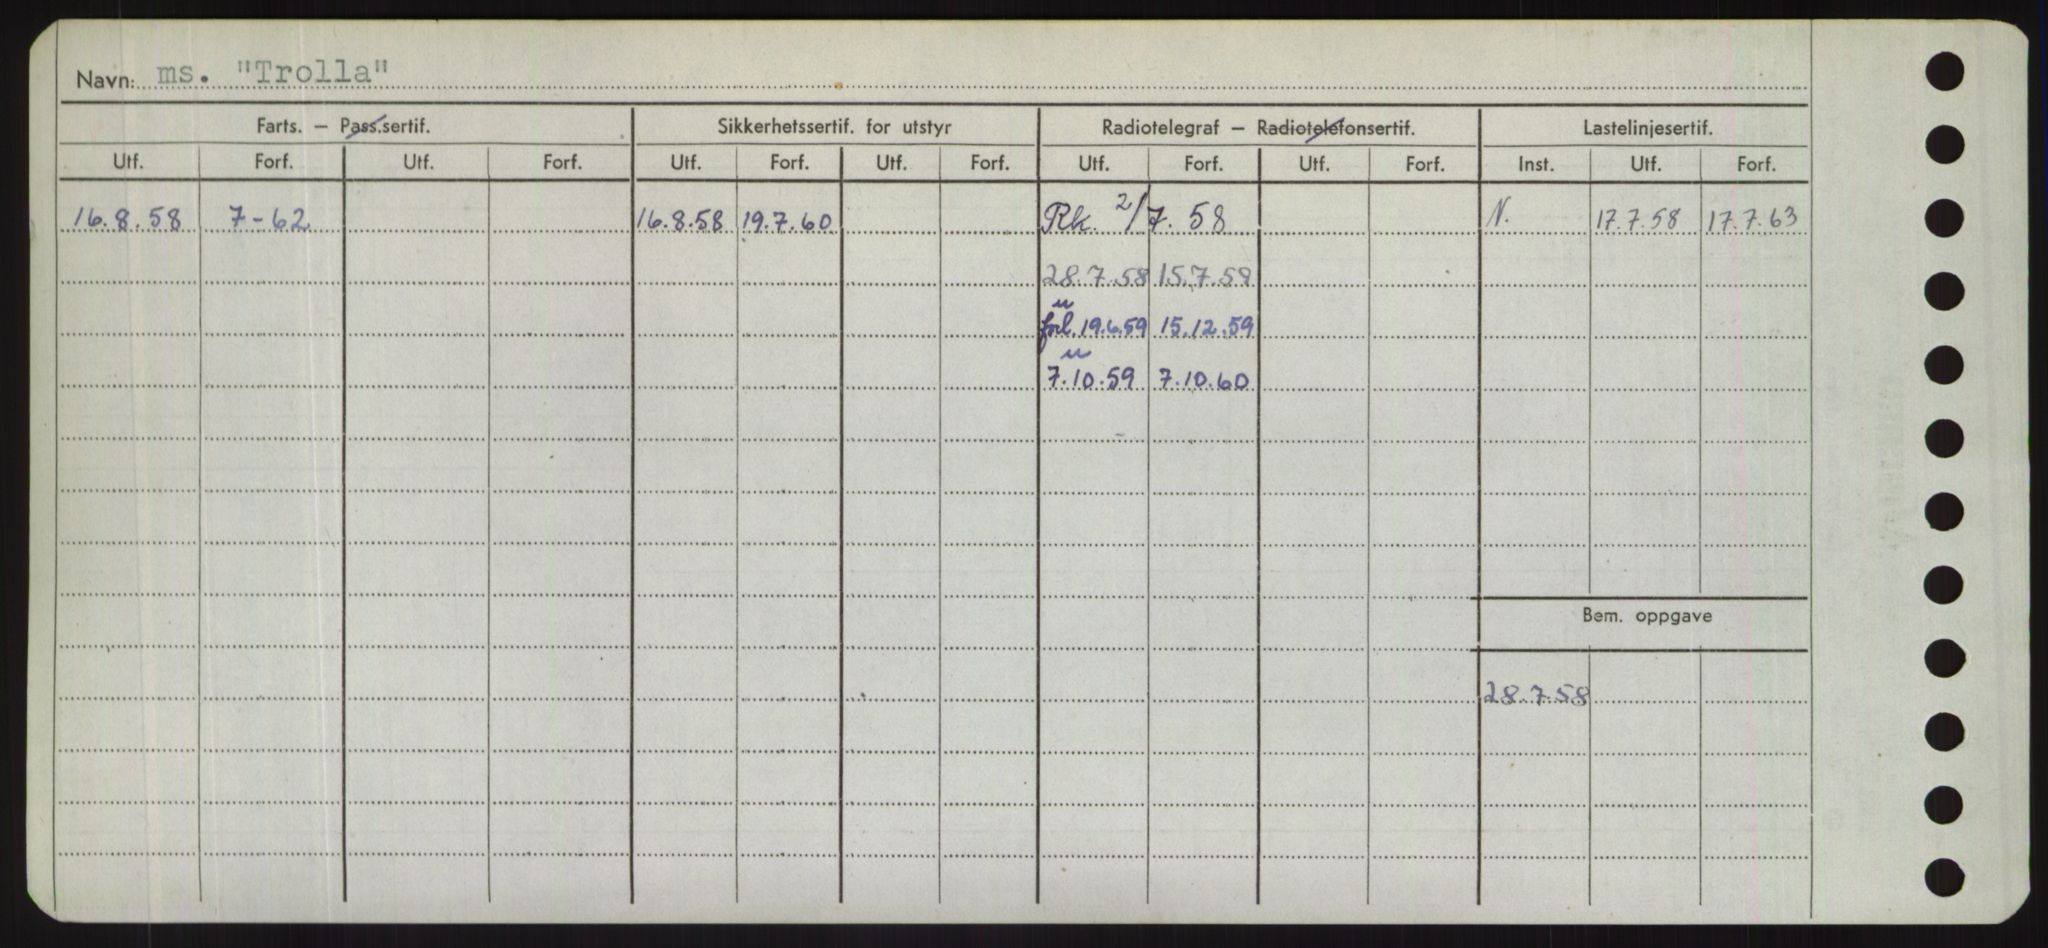 Navn: ms. "Trolla"
Farts. — Pass.sertif. Sikkerhetssertif. for utstyr Radiotelegraf — Radiotelefonsertif. Lastelinjesertif.
Utf. Forf. Utf. Forf. Utf. Forf. Utf. Forf. Utf. Forf. Utf. Forf. Inst. Utf. Forf.
16.8.58 7-62 16.8.58 19.7.60 Rk. 2/7.58 N. 17.7.58 17.7.63
28.7.58 15.7.59
u
forl. 19.6.59 15.12.59
u
7.10.59 7.10.60
Bem. oppgave
28.7.58